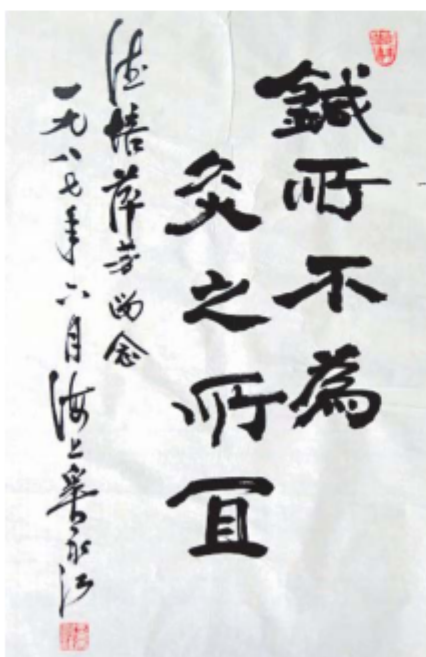 鍼所不為
灸之所宜
德培萍芳留念
一九八七年六月海上